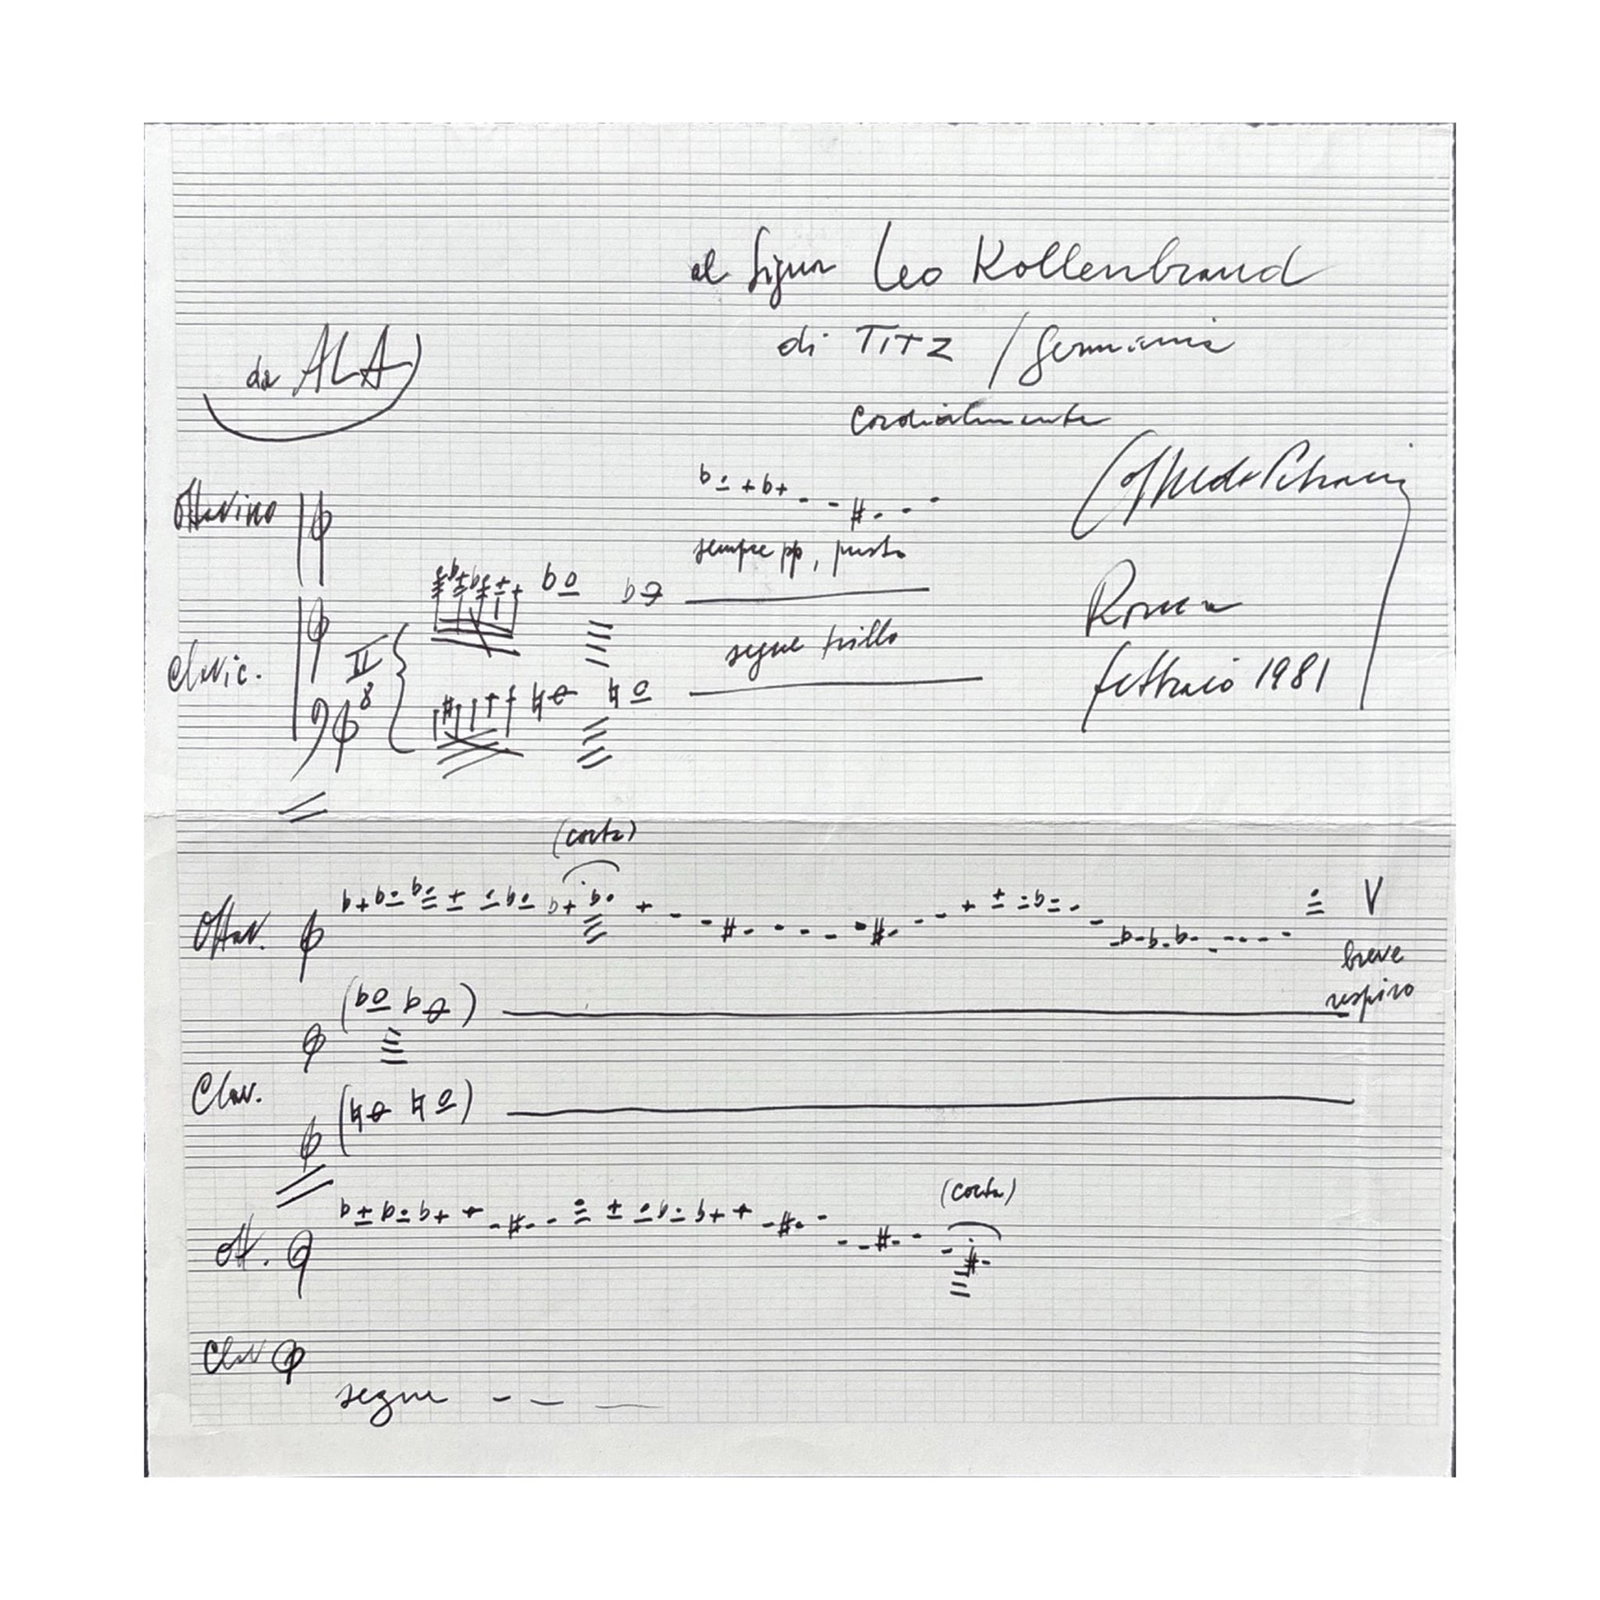 al Signor Leo Kollenbrand
di TITZ / Germania
cordialmente
da ALA
Goffredo Petrassi
Ottavino
sempre pp, presto
Roma
febbraio 1981
Clavic.
II
8
segue trillo
(corta)
Ottav.
breve
respiro
Clav.
(corta)
Ott.
Clav
segue - - -